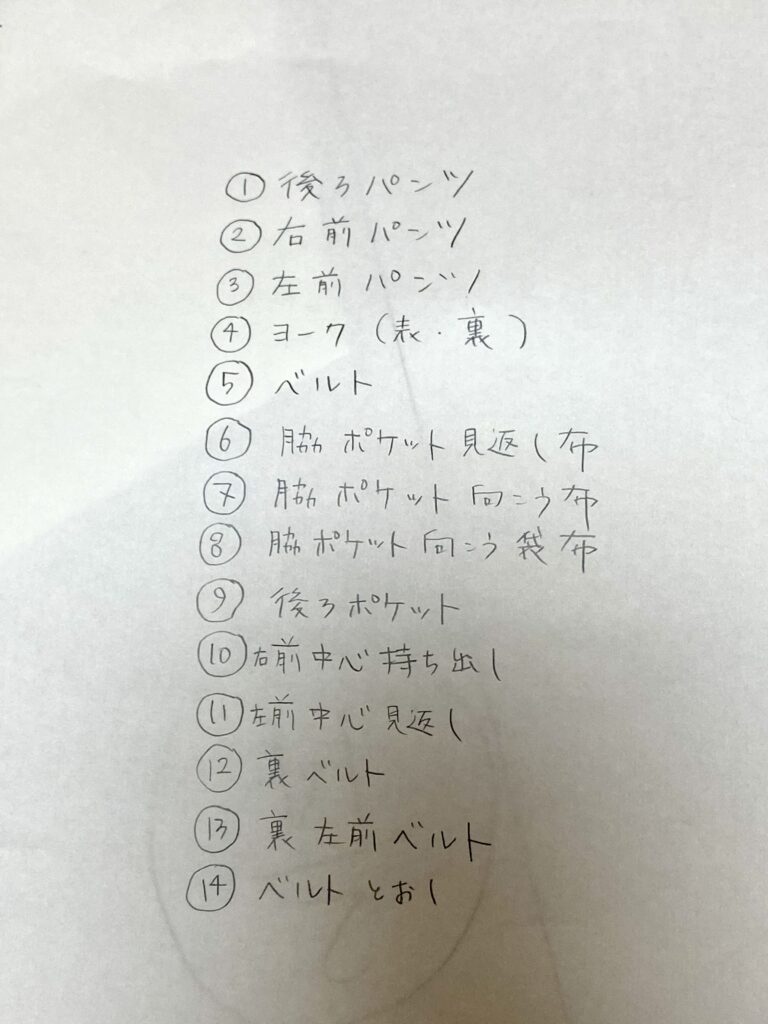 ① 後ろパンツ
② 右前パンツ
③ 左前パンツ
④ ヨーク (表・裏)
⑤ ベルト
⑥ 脇ポケット見返し布
⑦ 脇ポケット向こう布
⑧ 脇ポケット向こう袋布
⑨ 後ろポケット
⑩ 右前中心持ち出し
⑪ 左前中心見返し
⑫ 裏ベルト
⑬ 裏左前ベルト
⑭ ベルトとおし